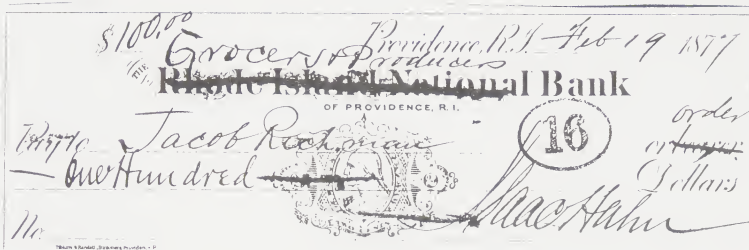 $100.00 Providence, R.I. Feb 19 1877
Grocers & Producers
THE
Rhode Island National Bank
OF PROVIDENCE, R. I.
Pay to Jacob Richman order
16 or bearer
One Hundred Dollars
Isaac Hahn
No.